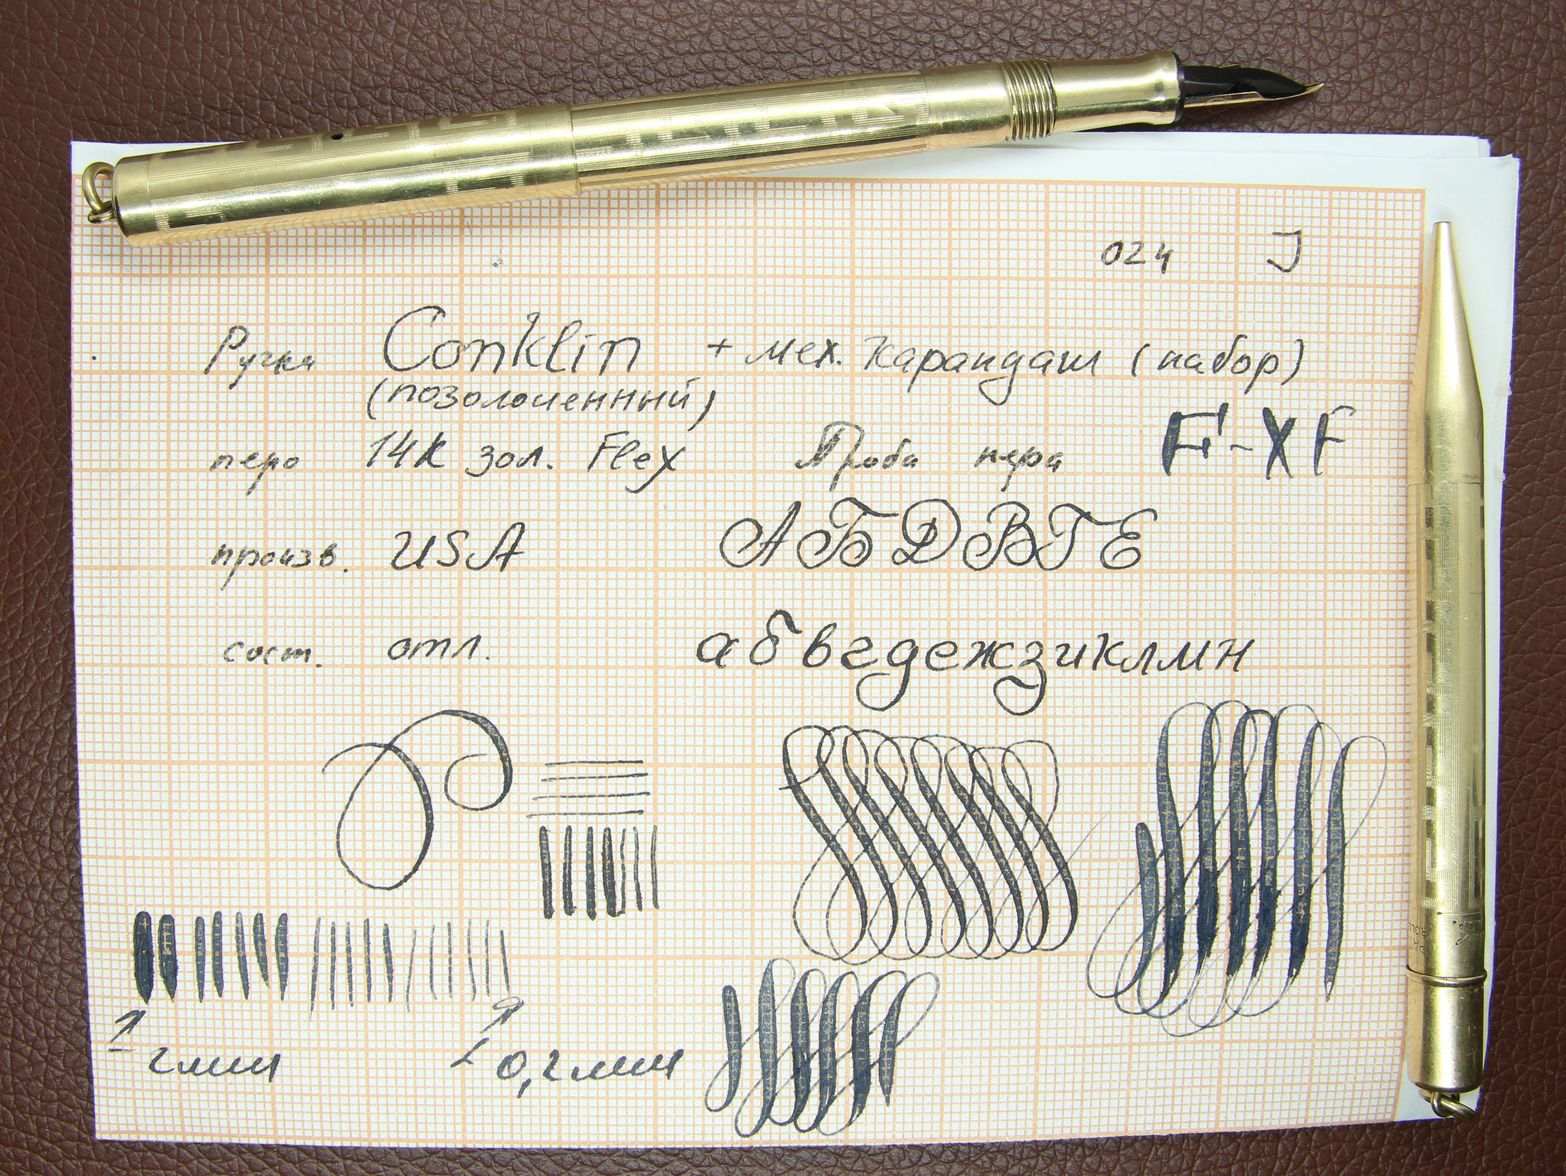 024 J
Ручка Conklin + мех. карандаш (набор)
(позолоченный)
перо 14К зол. Flex Проба пера F-XF
произв. USA АБДВГЕ
сост. отл. абвгдежзиклмн
2мм 0,2мм